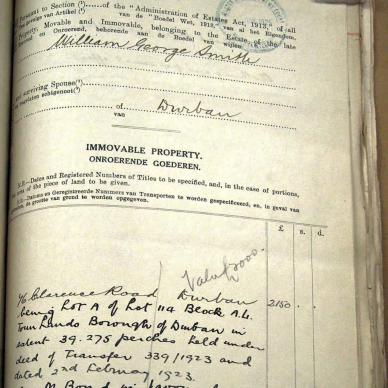 Pursuant to Section (¹)......of the "Administration of Estates Act, 1913," of all
van de "Boedel Wet, 1913," van al het Eigendom,
Property, Movable and Immovable, belonging to the Estate of the late
en Onroerend, behorende aan de Boedel van wijlen
William George Smith
surviving Spouse (³)
of
van
Durban
IMMOVABLE PROPERTY.
ONROERENDE GOEDEREN.
N.B.—Dates and Registered Numbers of Titles to be specified, and, in the case of portions,
area of the piece of land to be given.
N.B.—Datums en Geregistreerde Nummers van Transporten te worden gespecificeerd, en, in geval van
, de grootte van grond te worden opgegeven.
£ s. d.
Clarence Road Durban 2150 . .
being Lot A of Lot 114 Block A.L.
Town Lands Borough of Durban in
extent 39.275 perches held under
deed of Transfer 339/1923 and
dated 2nd February 1923.
Bond in favour